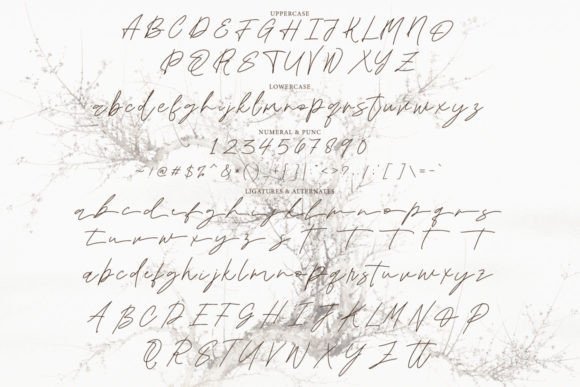 UPPERCASE
A B C D E F G H I J K L M N O
P Q R S T U V W X Y Z
LOWERCASE
a b c d e f g h i j k l m n o p q r s t u v w x y z
NUMERAL & PUNC
1 2 3 4 5 6 7 8 9 0
~ ! @ # $ % ^ & * ( ) _ + { } | : " < > ? , . / ; ' [ ] \ = - `
LIGATURES & ALTERNATES
a b c d e f g h i j k l m n o p q r s
t u v w x y z s t t t t t t
a b c d e f g h i j k l m n o p q r s t u v w x y z
A B C D E F G H I J K L M N O P
Q R S T U V W X Y Z tt